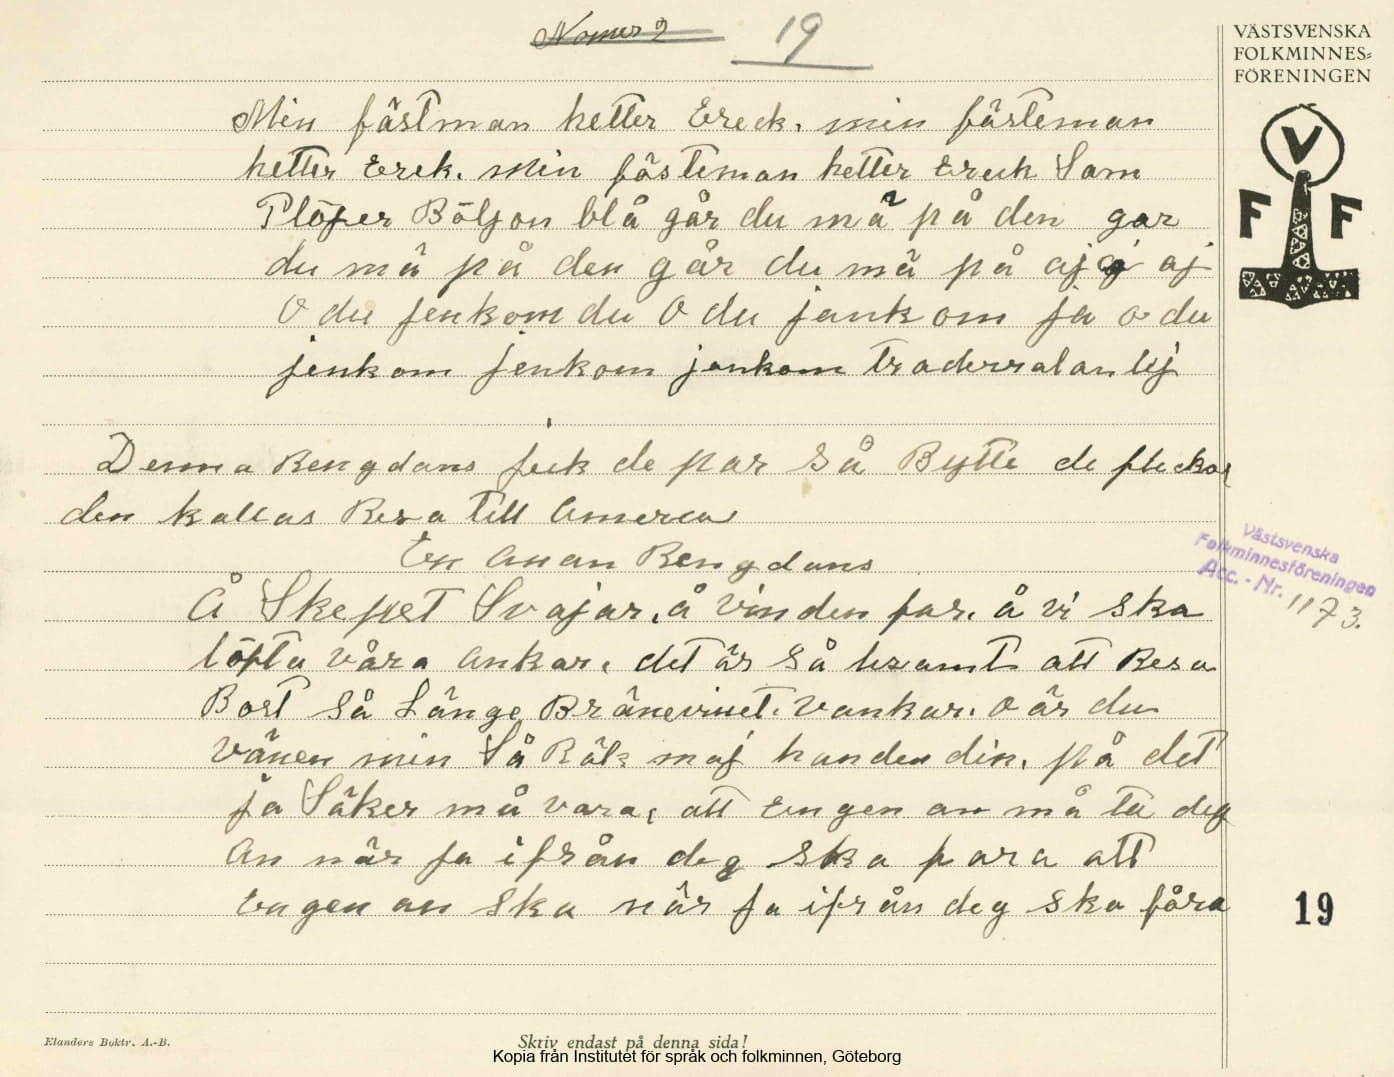 Nomer 2
19
VÄSTSVENSKA
FOLKMINNES=
FÖRENINGEN
V
F F
Min fästman hetter Ereck. min fästeman
hetter Erek. Min fästeman hetter Ereck Som
Plöjer Böljon blå går du må på den gar
du må på den går du må på aj aj aj
O du jenkom du O du jankom ja o du
jenkom jenkom jenkom traderralanlej
Denna Rengdans jeck de par så Bytte de fleckor
den kallas Resa till Amerea
En Anan Rengdans
Å Skepet Svajar. å vinden far. å vi ska
löfta våra ankar. det är så lesamt att Resa
Bort så Länge Bränevinet. vankar. O är du
vänen min Så Räk maj handen din. på det
ja Säker må vara, att Engen an må ta deg
An när ja ifrån deg ska fara att
Engen an ska när ja ifrån deg ska fåra
Västsvenska
Folkminnesföreningen
Acc. - Nr. 1173.
19
Elanders Boktr. A.-B.
Skriv endast på denna sida!
Kopia från Institutet för språk och folkminnen, Göteborg